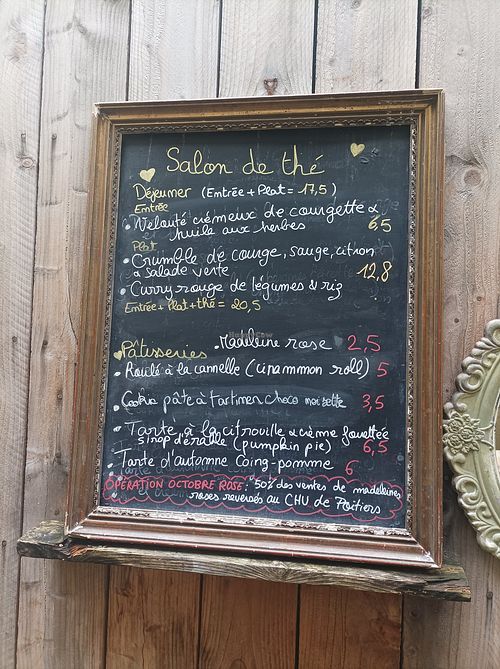 Salon de thé
Déjeuner (Entrée + Plat = 17,5)
Entrée
• Velouté crémeux de courgette &
huile aux herbes 6,5
Plat
• Crumble de courge, sauge, citron
& salade verte 12,8
• Curry rouge de légumes & riz
Entrée + Plat + thé = 20,5
Pâtisseries • Madeleine rose 2,5
• Roulé à la cannelle (cinammon roll) 5
• Cookie pâte à tartiner choco noisette 3,5
• Tarte à la citrouille & crème fouettée
sirop d'érable (pumpkin pie) 6,5
• Tarte d'automne Coing-pomme 6
OPÉRATION OCTOBRE ROSE : 50% des ventes de madeleines
roses reversés au CHU de Poitiers